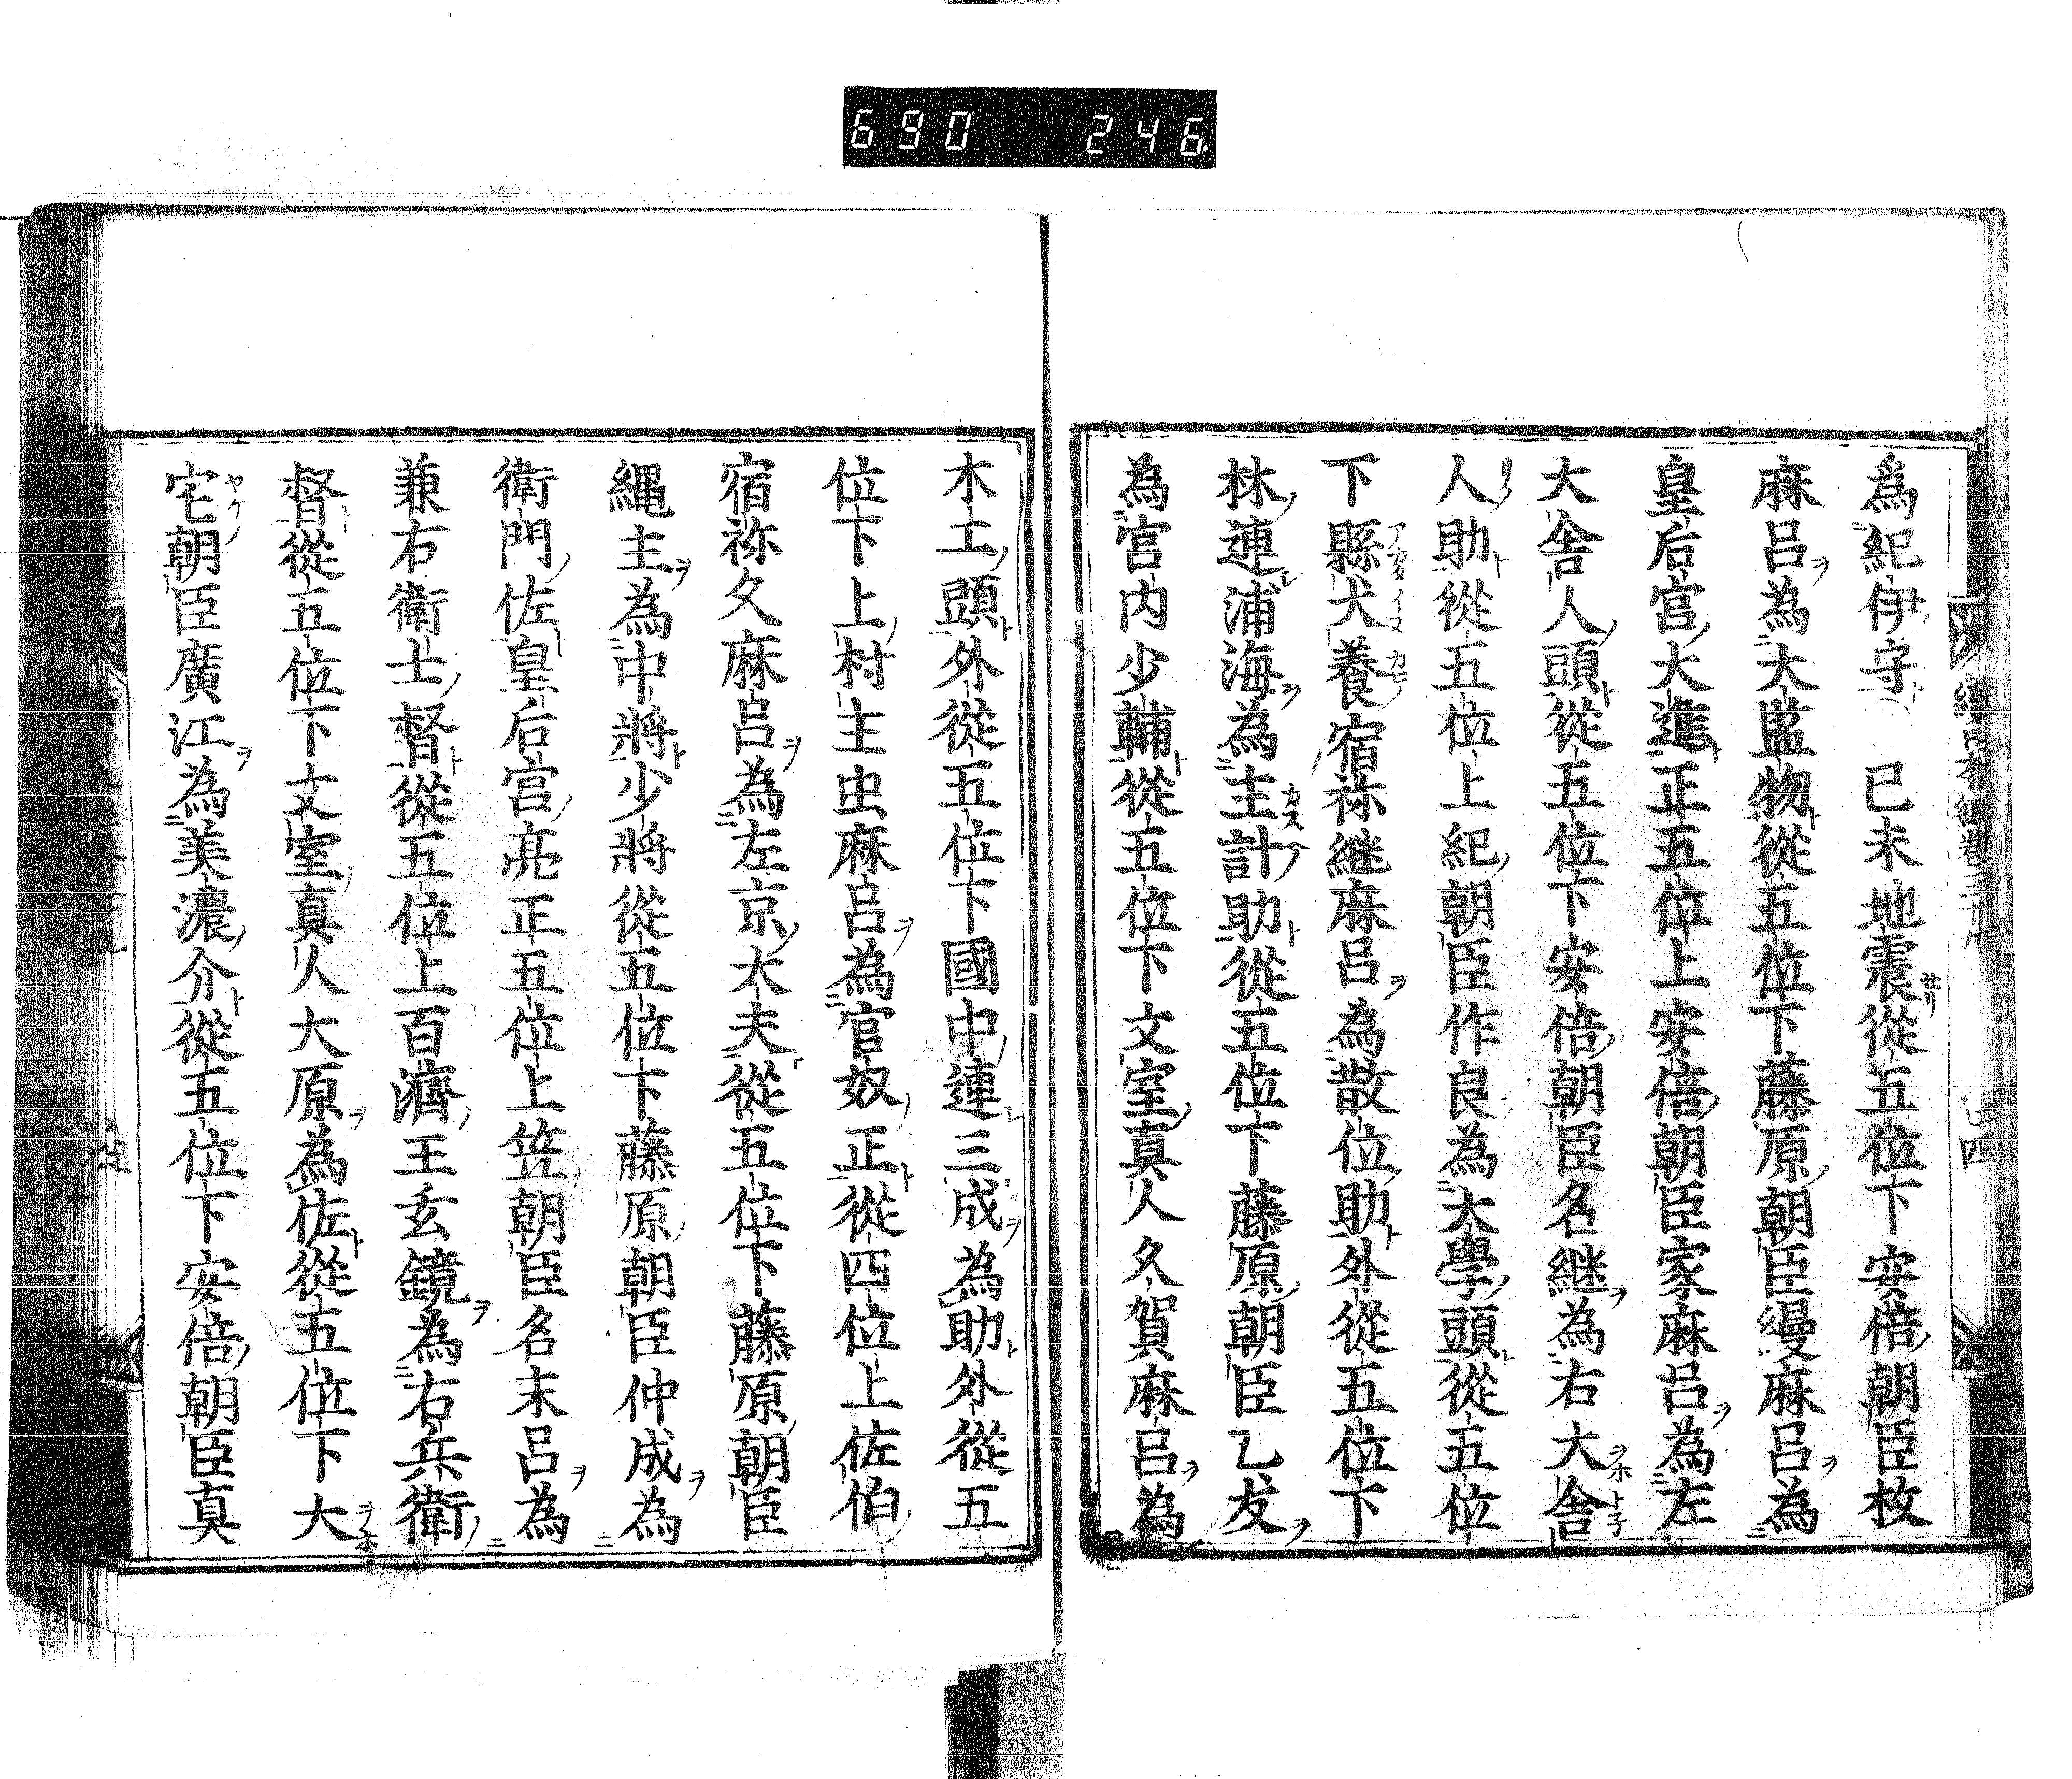 690 246
爲紀伊守 已未地震從五位下安倍朝臣枚
麻呂為大監物從五位下藤原朝臣縵麻呂為
皇后宮大進正五位上安倍朝臣家麻呂為左
大舎人頭從五位下安倍朝臣名継為右大舎
人助從五位上紀朝臣作良為大學頭從五位
下縣犬養宿祢継麻呂為散位助外從五位下
林連浦海為主計助從五位下藤原朝臣乙友
為宮内少輔從五位下文室真人久賀麻呂為
木工頭外從五位下國中連三成為助外從五
位下上村主虫麻呂為官奴正從四位上佐伯
宿祢久麻呂為左京大夫從五位下藤原朝臣
縄主為中將少將從五位下藤原朝臣仲成為
衛門佐皇后宮亮正五位上笠朝臣名末呂為
兼右衛士督從五位上百濟王玄鏡為右兵衛
督從五位下文室真人大原為佐從五位下大
宅朝臣廣江為美濃介從五位下安倍朝臣真